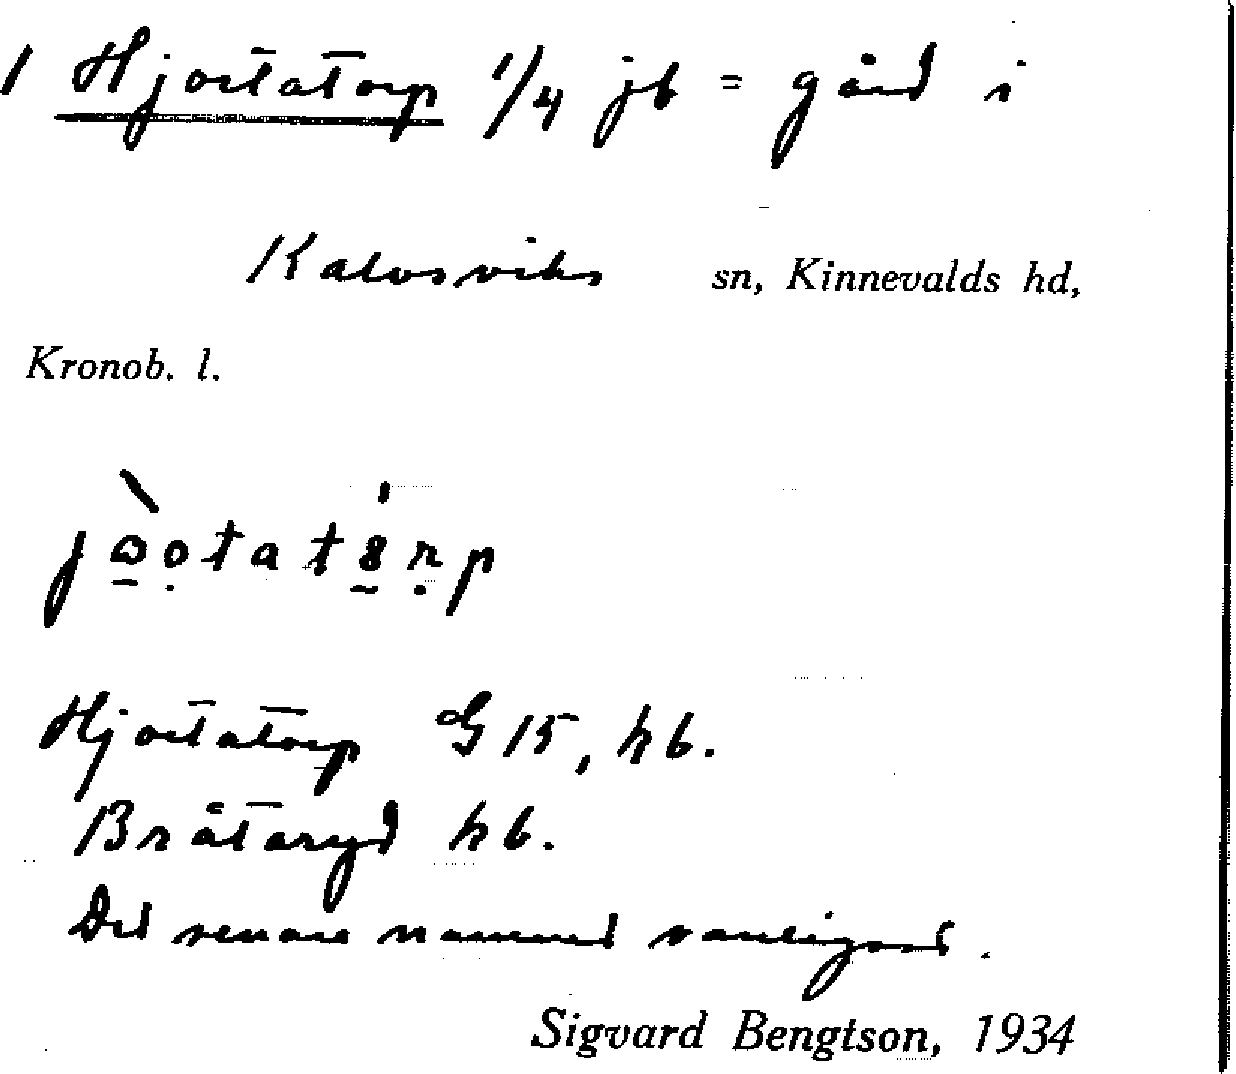 1 Hjortatorp 1/4 jb = gård i
Kalvsviks sn, Kinnevalds hd,
Kronob. l.
Hjortatorp G 15, hb.
Bråtaryd hb.
Det senare namnet vanligast.
Sigvard Bengtson, 1934